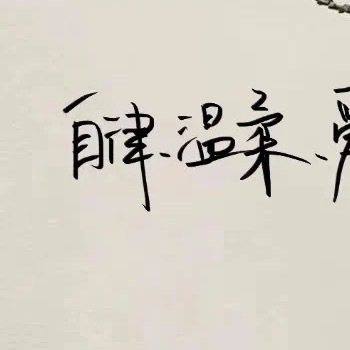 自律、温柔、